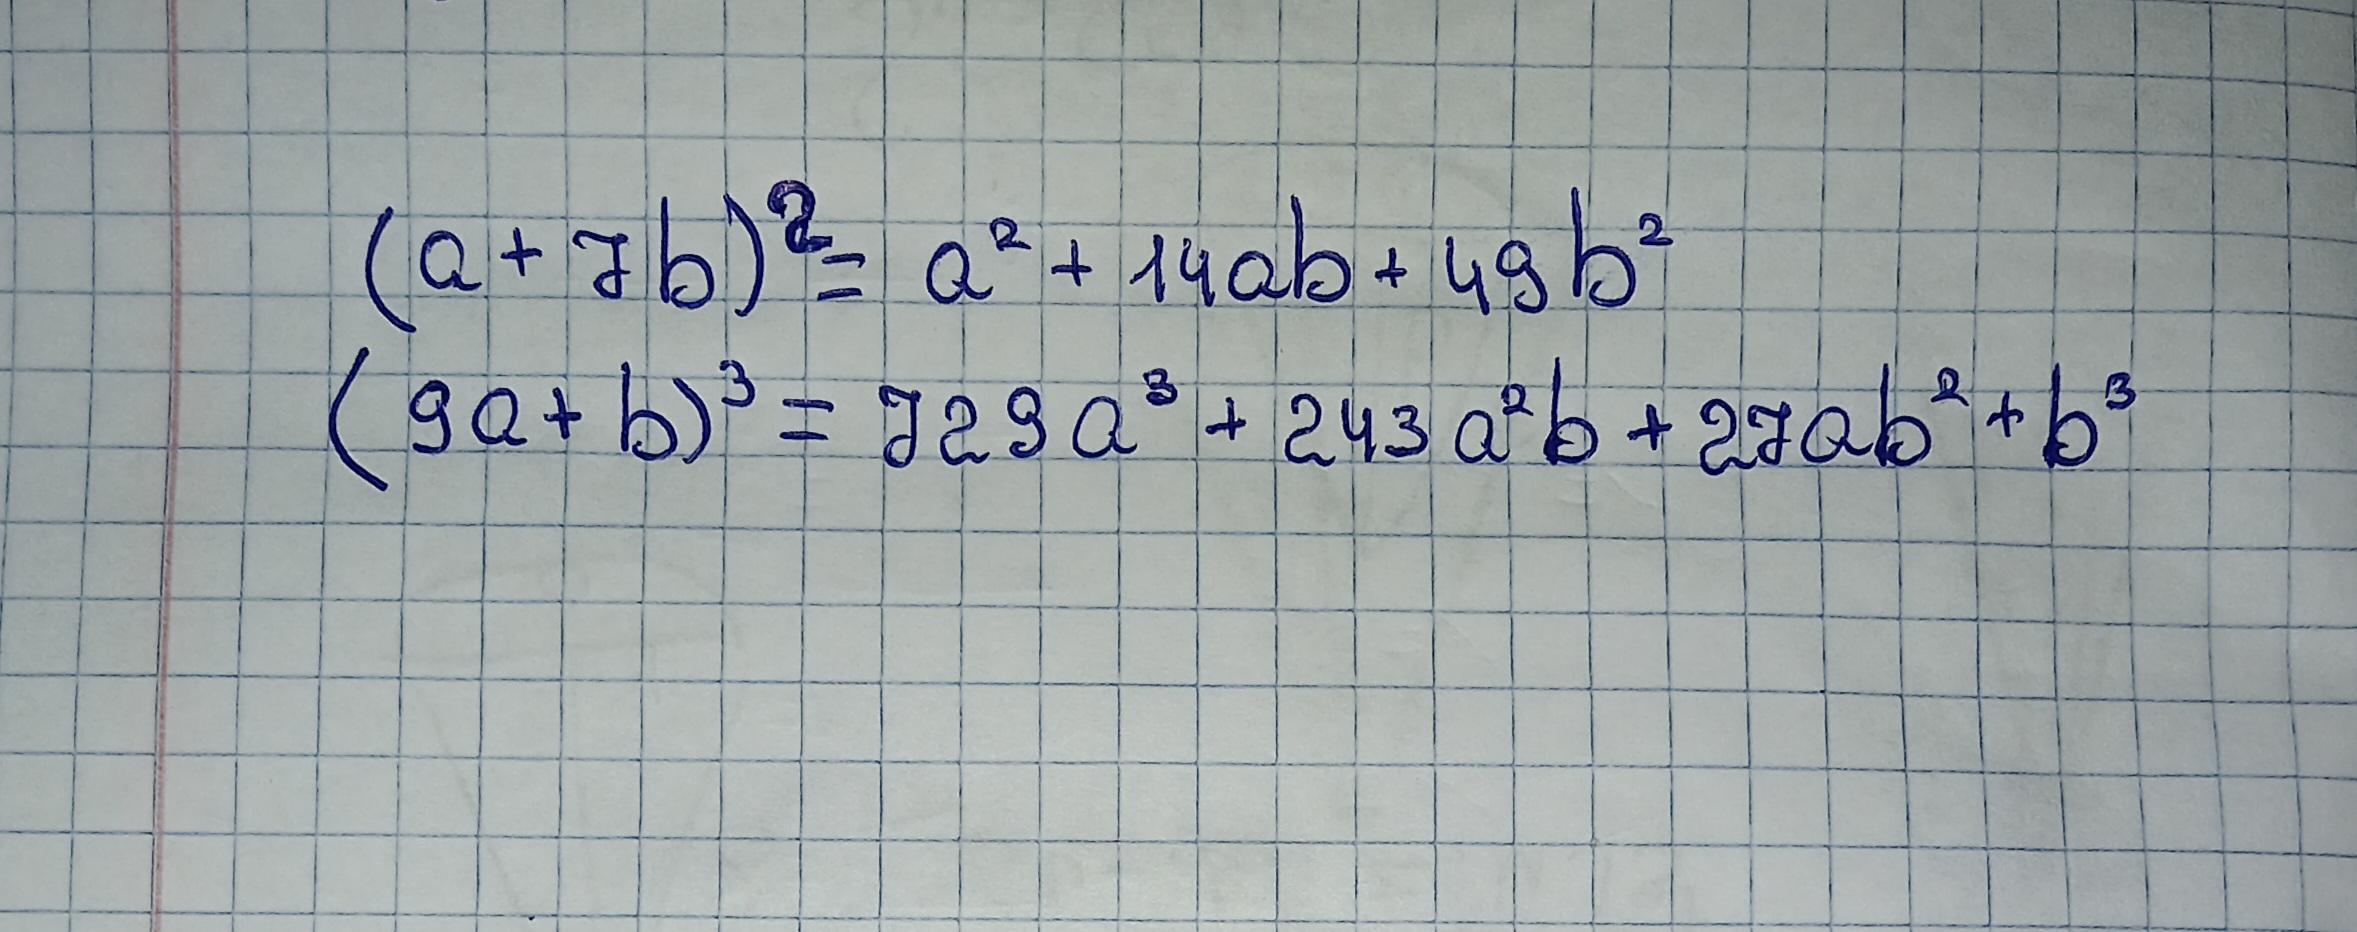 (a+7b)²= a²+14ab+49b²
(9a+b)³=729a³+243a²b+27ab²+b³